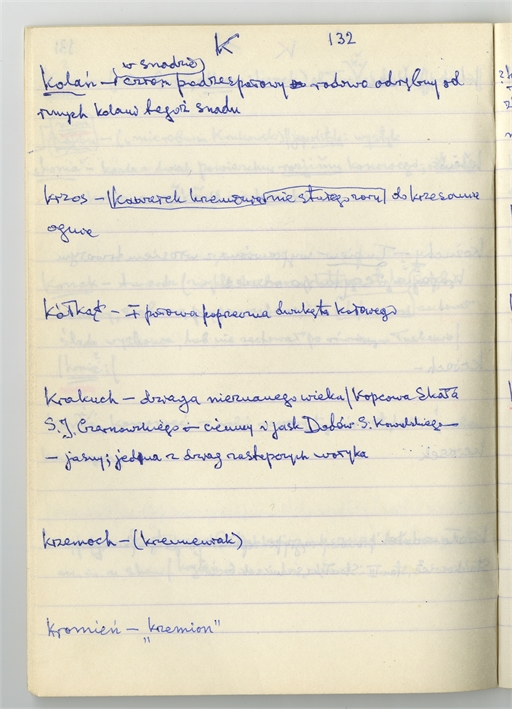 K 132
w snadzie
Kolań – człon podzespołowy rodowo odrębny od
innych kolani tegoż snadu
krzos – (kawałek krzemienia nie służącego) do krzesania
ognia
Kátkąt – połowa poprzeczna dwukąta kołowego
Krakuch – dzwaga nieznanego wieku/Kopcowa Skała
S.J. Czarnowskiego – ciemny i jask Dadów S. Kowalskiego –
– jasny; jedna z dzwag zastępczych wotyka
krzemoch – (krzemieniak)
Kromień – „krzemion”